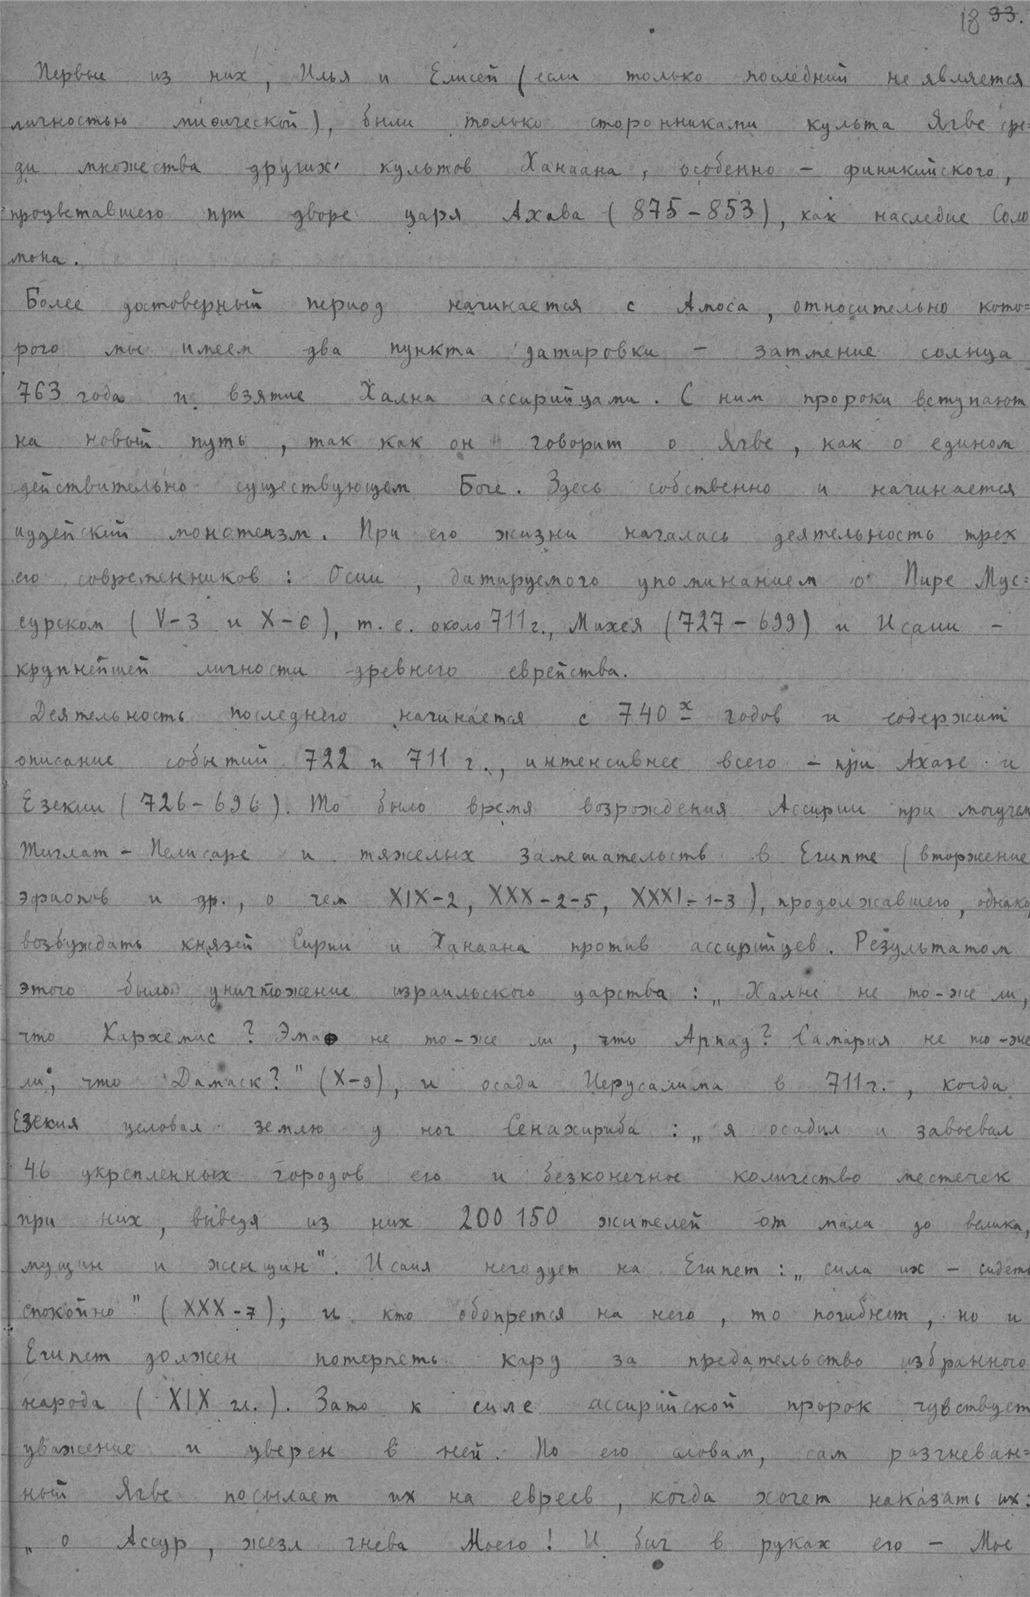 18 33.
Первые из них, Илья и Елисей (если только последний не является
личностью мифической), были только сторонниками культа Ягве сре-
ди множества других культов Ханаана, особенно – финикийского,
процветавшего при дворе царя Ахава (875–853), как наследие Соло
мона.
Более достоверный период начинается с Амоса, относительно кото=
рого мы имеем два пункта датировки – затмение солнца
763 года и взятие Халнэ ассирийцами. С ним пророки вступают
на новый путь, так как он говорит о Ягве, как о едином
действительно существующем Боге. Здесь собственно и начинается
иудейский монотеизм. При его жизни началась деятельность трех
его современников: Осии, датируемого упоминанием о Пире Мус=
сурском (V–3 и X–6), т.е. около 711 г., Михея (727–699) и Исаии –
крупнейшей личности древнего еврейства.
Деятельность последнего начинается с 740х годов и содержит
описание событий 722 и 711 г., интенсивнее всего – при Ахазе и
Езекии (726–696). То было время возрождения Ассирии при могучем
Тиглат–Пелисаре и тяжелых замешательств в Египте (вторжение
эфиопов и др., о чем XIX–2, XXX–2–5, XXXI–1–3), продолжавшего, однако,
возбуждать князей Сирии и Ханаана против ассирийцев. Результатом
этого было уничтожение израильского царства: „Халнэ не то-же ли,
что Кархемис? Эмаф не то-же ли, что Арпад? Самария не то-же
ли, что Дамаск?" (X–9), и осада Иерусалима в 711 г., когда
Езекия целовал землю у ног Сенахириба: „я осадил и завоевал
46 укрепленных городов его и безконечное количество местечек
при них, выведя из них 200 150 жителей от мала до велика,
мущин и женщин". Исаия негодует на Египет: „сила их – сидеть
спокойно" (XXX–7), и кто обопрется на него, то погибнет, но и
Египет должен потерпеть кару за предательство избранного
народа (XIX гл.). Зато к силе ассирийской пророк чувствует
уважение и уверен в ней. По его словам, сам разгневан=
ный Ягве посылает их на евреев, когда хочет наказать их:
„о Ассур, жезл гнева Моего! И бич в руках его – Мое